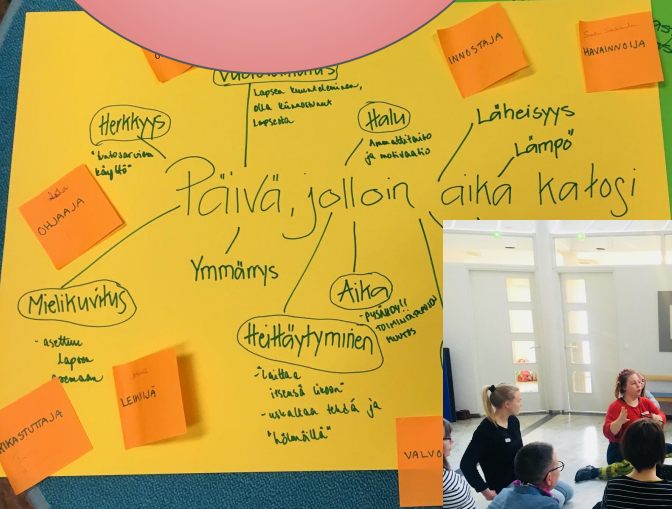 INNOSTAJA
HAVAINNOIJA
Lapsen kuunteleminen,
olla kiinnostunut
lapsesta
Herkkyys
"tuntosarvien
käyttö"
Halu
Ammattitaito
ja motivaatio
Läheisyys
Lämpö
OHJAAJA
Päivä, jolloin aika katosi
Ymmärrys
Mielikuvitus
- asettuu
lapsen
asemaan
Aika
- PYSÄHDY!!
Heittäytyminen
- "laittaa
itsensä likoon"
- uskaltaa tehdä ja
"hölmöillä"
LEIKKIJÄ
RIKASTUTTAJA
VALVO